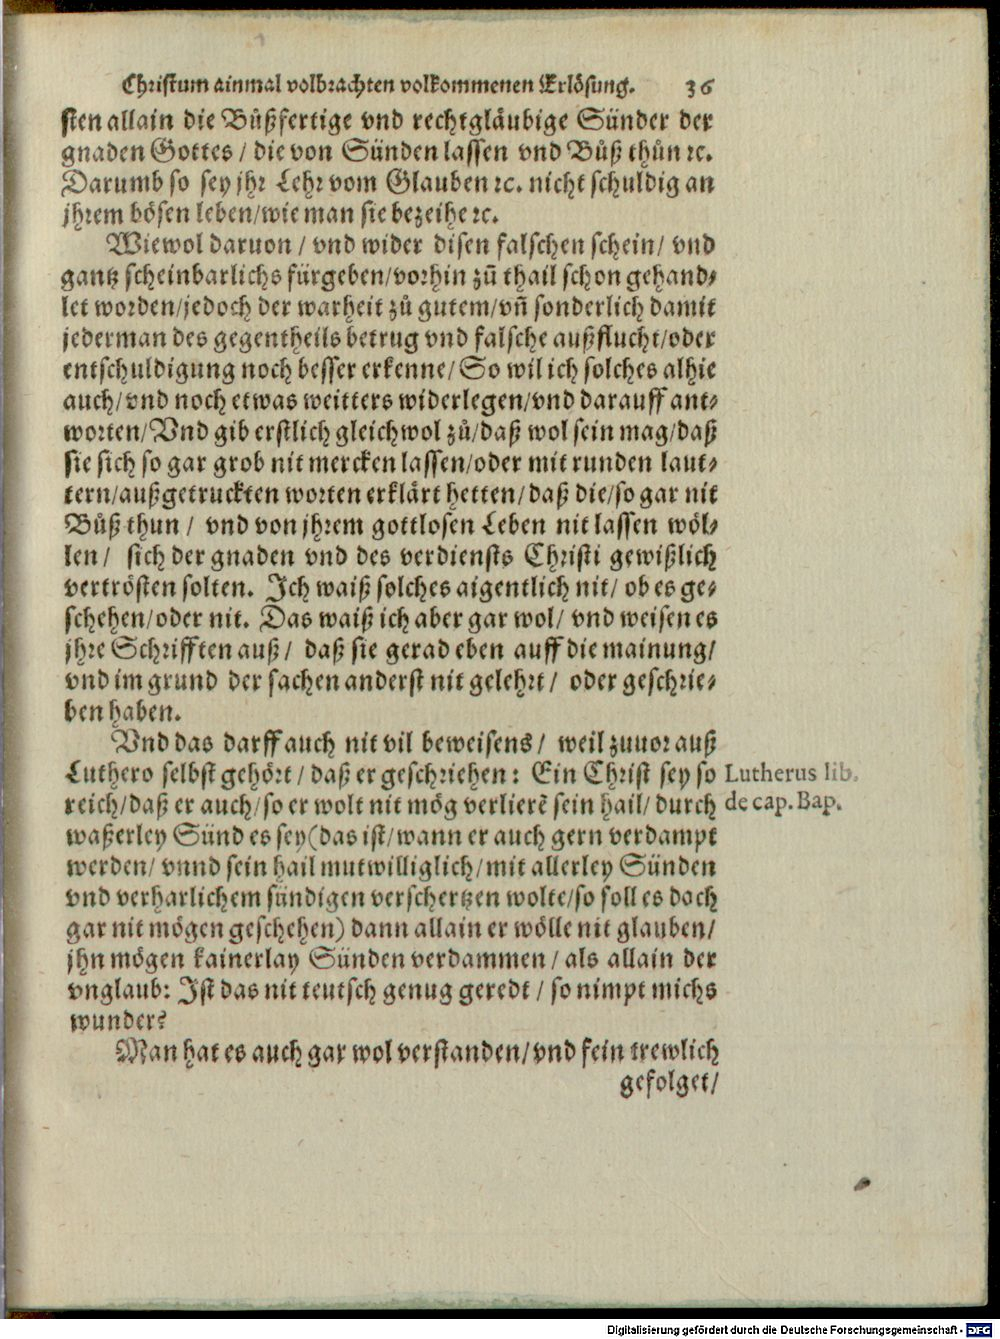 Christum ainmal volbrachten volkommenen Erlösung. 36
sten allain die Bůßfertige vnd rechtgläubige Sünder der
gnaden Gottes / die von Sünden lassen vnd Bůß thůn ꝛc.
Darumb so sey jhr Lehr vom Glauben ꝛc. nicht schuldig an
jhrem bösen leben/wie man sie bezeihe ꝛc.
Wiewol daruon / vnd wider disen falschen schein/ vnd
gantz scheinbarlichs fürgeben/vorhin zů thail schon gehand⸗
let worden/jedoch der warheit zů gutem/vñ sonderlich damit
jederman des gegentheils betrug vnd falsche außflucht/oder
entschuldigung noch besser erkenne/ So wil ich solches alhie
auch/vnd noch etwas weitters widerlegen/vnd darauff ant⸗
worten/Vnd gib erstlich gleichwol zů/daß wol sein mag/daß
sie sich so gar grob nit mercken lassen/oder mit runden laut⸗
tern/außgetruckten worten erklärt hetten/daß die/so gar nit
Bůß thun / vnd von jhrem gottlosen Leben nit lassen wöl⸗
len/ sich der gnaden vnd des verdiensts Christi gewißlich
vertrösten solten. Ich waiß solches aigentlich nit/ ob es ge⸗
schehen/oder nit. Das waiß ich aber gar wol/ vnd weisen es
jhre Schrifften auß/ daß sie gerad eben auff die mainung/
vnd im grund der sachen anderst nit gelehrt/ oder geschrie⸗
ben haben.
Vnd das darff auch nit vil beweisens/ weil zuuor auß
Luthero selbst gehört/ daß er geschriehen: Ein Christ sey so
Lutherus lib.
reich/daß er auch/so er wolt nit mög verlierē sein hail/ durch
de cap. Bap.
waßerley Sünd es sey(das ist/wann er auch gern verdampt
werden/ vnnd sein hail mutwilliglich/mit allerley Sünden
vnd verharlichem sündigen verschertzen wolte/so soll es doch
gar nit mögen geschehen) dann allain er wölle nit glauben/
jhn mögen kainerlay Sünden verdammen/ als allain der
vnglaub: Ist das nit teutsch genug geredt / so nimpt michs
wunder?
Man hat es auch gar wol verstanden/vnd fein trewlich
gefolget/
Digitalisierung gefördert durch die Deutsche Forschungsgemeinschaft - DFG